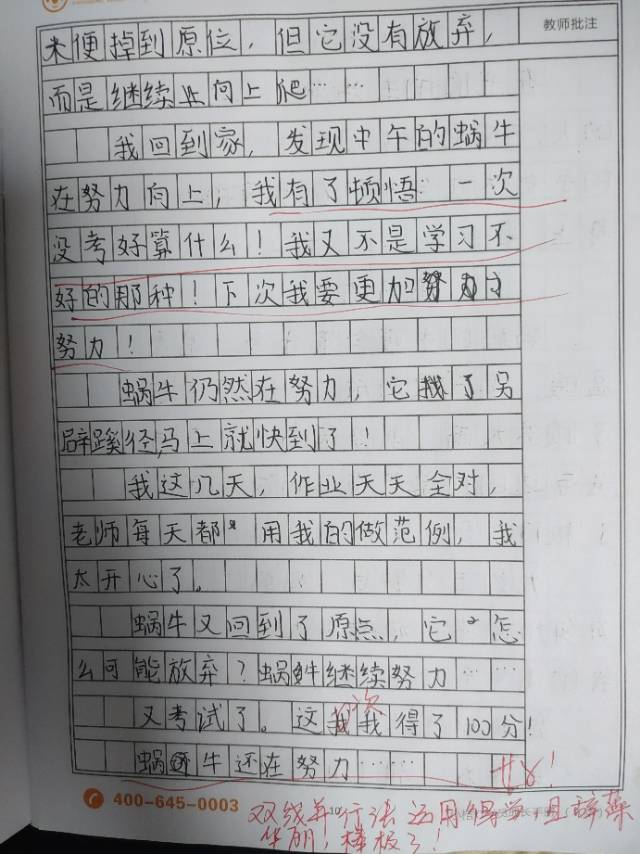 教师批注
未便掉到原位，但它没有放弃，
而是继续业向上爬……
我回到家，发现中午的蜗牛
在努力向上，我有了顿悟 一次
没考好算什么！我又不是学习不
好的那种！下次我要更加努力
努力！
蜗牛仍然在努力，它找了另
辟蹊径，马上就快到了！
我这几天，作业天天全对，
老师每天都 用我的做范例，我
太开心了。
蜗牛又回到了原点，它 怎
么可能放弃？蜗牛继续努力……
次
又考试了。这我我得了100分！
蜗牛还在努力……
400-645-0003
双线并行法 运用得当，且辞藻
华丽，棒极了！